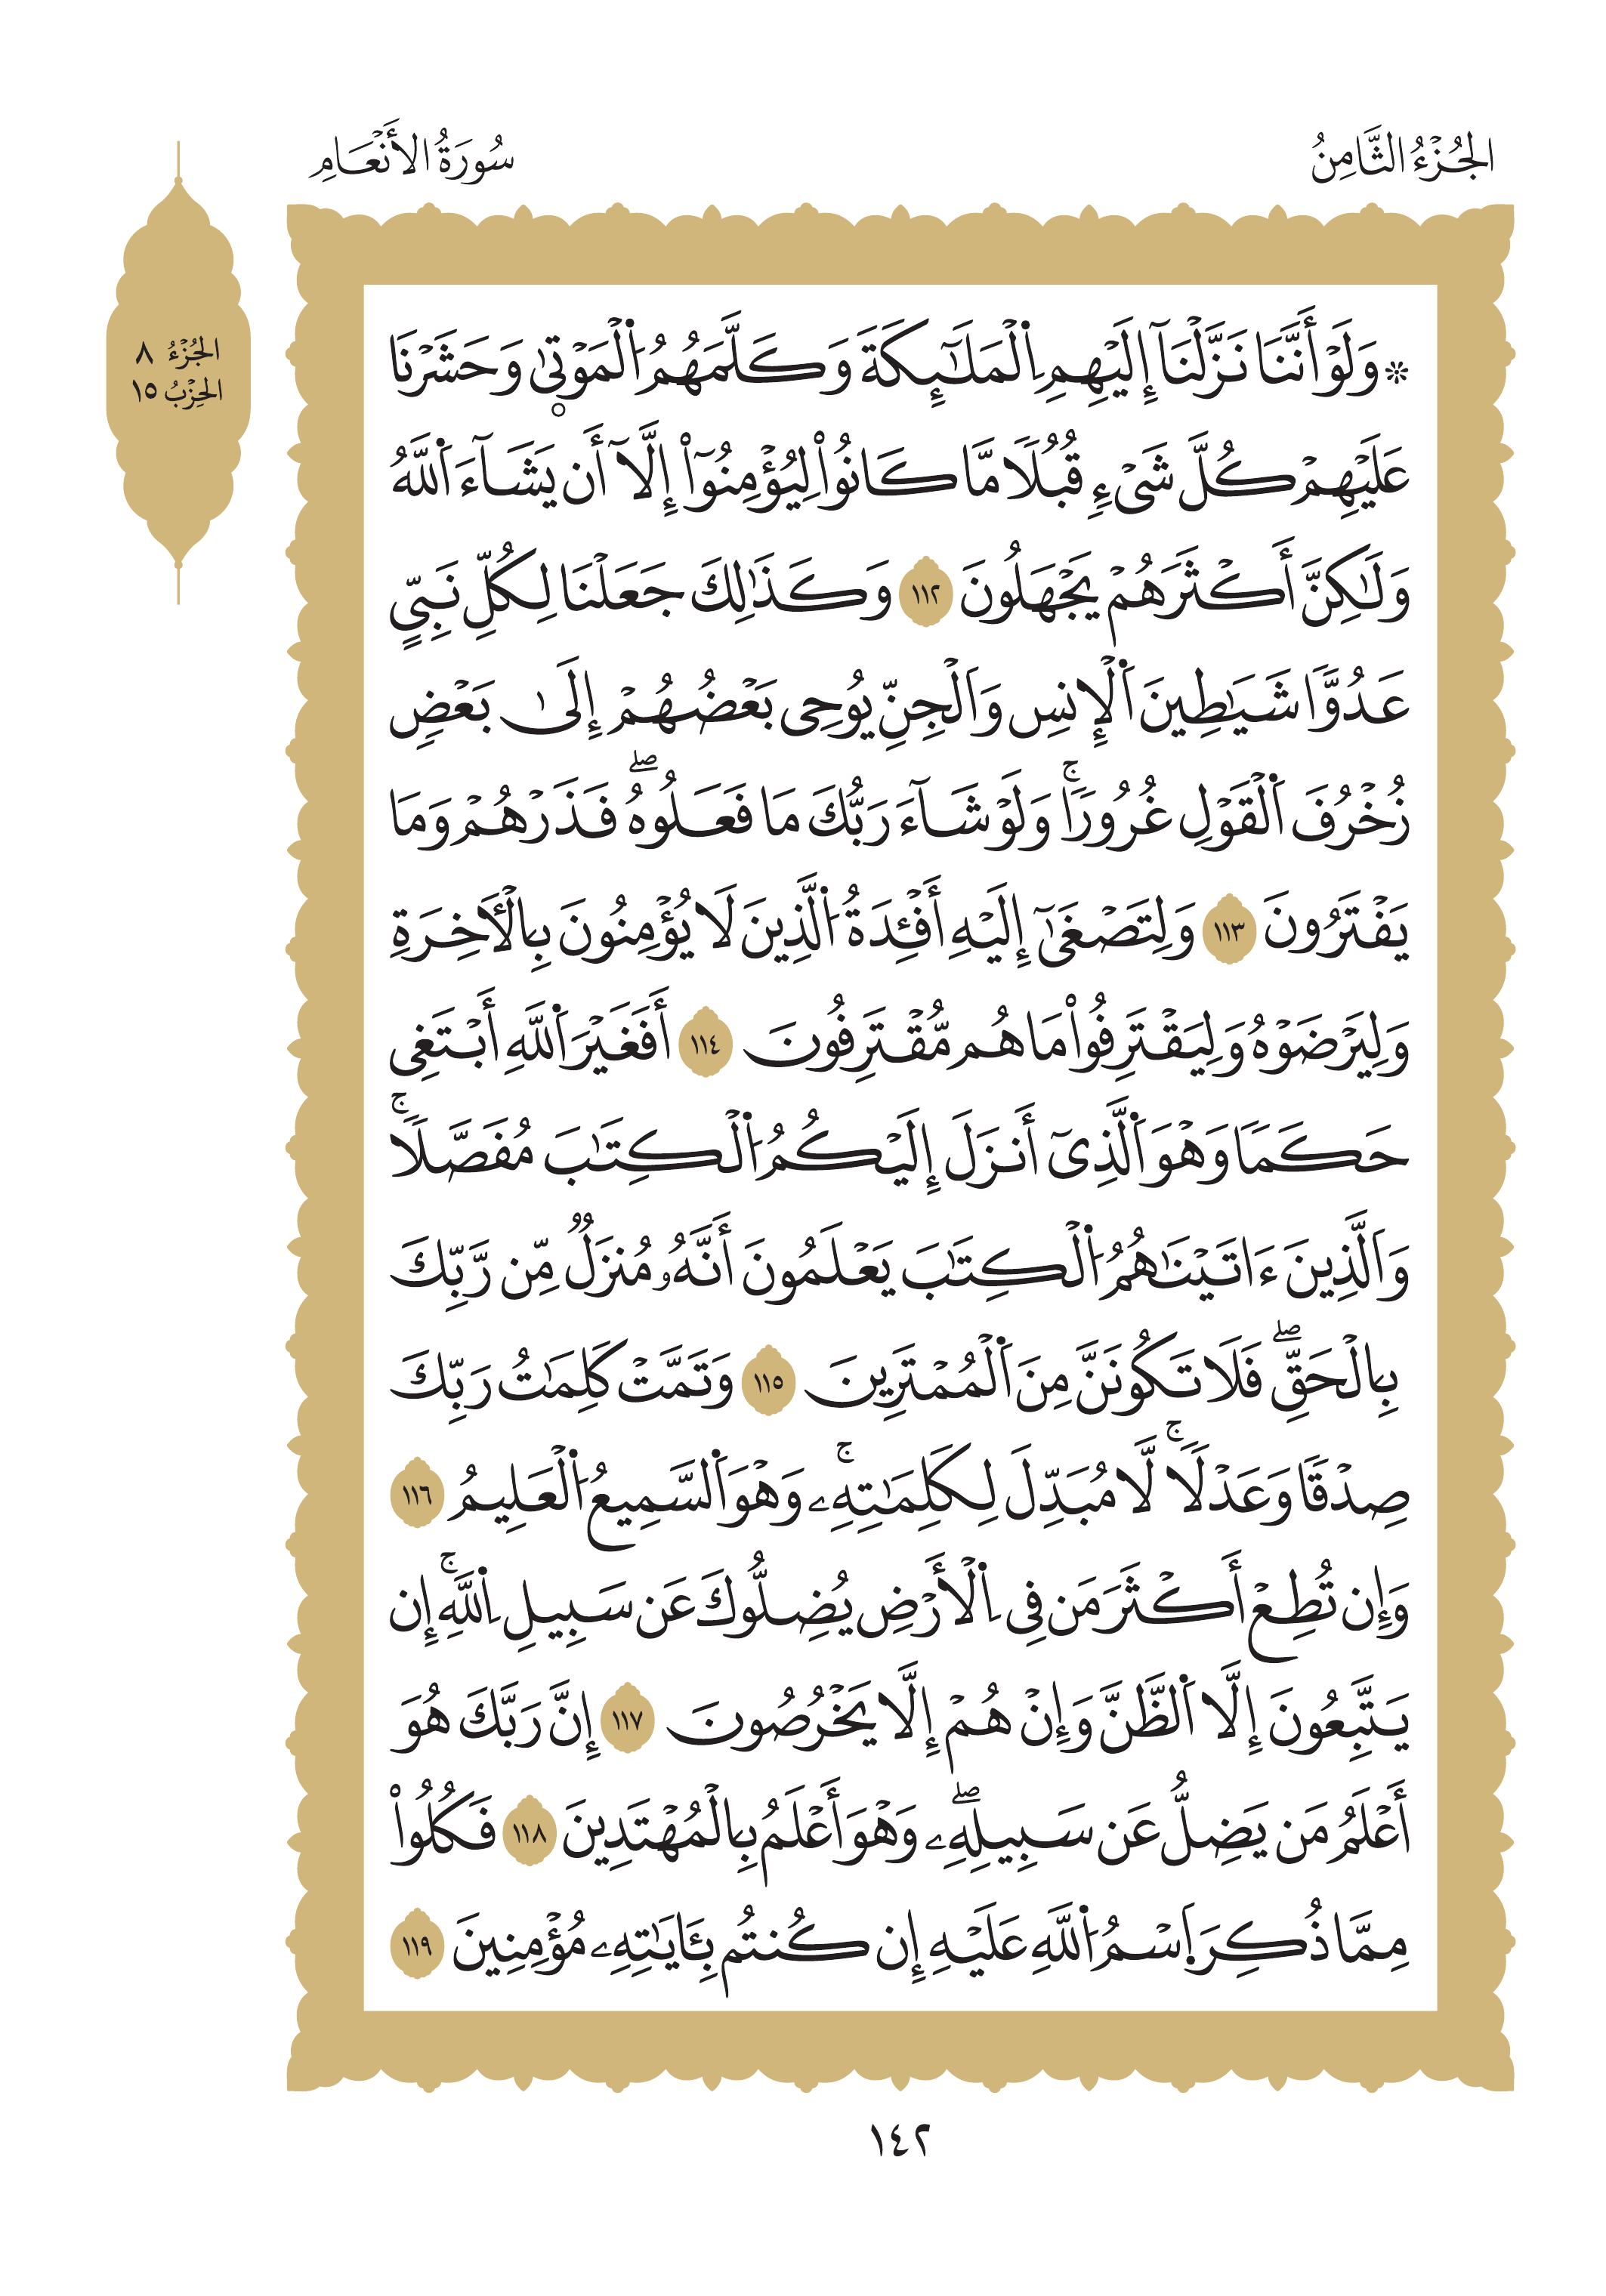 الجُزْءُ الثَّامِنُ
سُورَةُ الأَنْعَامِ
الجُزْءُ ٨
الحِزْبُ ١٥
۞ وَلَوْ أَنَّنَا نَزَّلْنَآ إِلَيْهِمِ اِ۬لْمَلَٰٓئِكَةَ وَكَلَّمَهُمُ اُ۬لْمَوْتىٰ وَحَشَرْنَا
عَلَيْهِمْ كُلَّ شَىْءٍ قُبُلًا مَّا كَانُوا۟ لِيُؤْمِنُوٓا۟ إِلَّآ أَن يَشَآءَ اَ۬للَّهُ
وَلَٰكِنَّ أَكْثَرَهُمْ يَجْهَلُونَ ١١٢ وَكَذَٰلِكَ جَعَلْنَا لِكُلِّ نَبِيٍّ
عَدُوًّا شَيَٰطِينَ اَ۬لْإِنسِ وَاَلْجِنِّ يُوحِى بَعْضُهُمْ إِلَىٰ بَعْضٍ
زُخْرُفَ اَ۬لْقَوْلِ غُرُورًاۚ وَلَوْ شَآءَ رَبُّكَ مَا فَعَلُوهُۖ فَذَرْهُمْ وَمَا
يَفْتَرُونَ ١١٣ وَلِتَصْغَىٰٓ إِلَيْهِ أَفْـِٔدَةُ اُ۬لَّذِينَ لَا يُؤْمِنُونَ بِالْأَخِرَةِ
وَلِيَرْضَوْهُ وَلِيَقْتَرِفُوا۟ مَا هُم مُّقْتَرِفُونَ ١١٤ أَفَغَيْرَ اَ۬للَّهِ أَبْتَغِى
حَكَمًا وَهْوَ اَ۬لَّذِىٓ أَنزَلَ إِلَيْكُمُ اُ۬لْكِتَٰبَ مُفَصَّلًاۚ
وَاَلَّذِينَ ءَاتَيْنَٰهُمُ اُ۬لْكِتَٰبَ يَعْلَمُونَ أَنَّهُۥ مُنزَلٌ مِّن رَّبِّكَ
بِالْحَقِّۖ فَلَا تَكُونَنَّ مِنَ اَ۬لْمُمْتَرِينَ ١١٥ وَتَمَّتْ كَلِمَٰتُ رَبِّكَ
صِدْقًا وَعَدْلًاۚ لَّا مُبَدِّلَ لِكَلِمَٰتِهِۦۚ وَهْوَ اَ۬لسَّمِيعُ اُ۬لْعَلِيمُ ١١٦
وَإِن تُطِعْ أَكْثَرَ مَن فِى اِ۬لْأَرْضِ يُضِلُّوكَ عَن سَبِيلِ اِ۬للَّهِۚ إِن
يَتَّبِعُونَ إِلَّا اَ۬لظَّنَّ وَإِنْ هُمْ إِلَّا يَخْرُصُونَ ١١٧ إِنَّ رَبَّكَ هُوَ
أَعْلَمُ مَن يَضِلُّ عَن سَبِيلِهِۦۖ وَهْوَ أَعْلَمُ بِالْمُهْتَدِينَ ١١٨ فَكُلُوا۟
مِمَّا ذُكِرَ اَ۪سْمُ اُ۬للَّهِ عَلَيْهِ إِن كُنتُم بِـَٔايَٰتِهِۦ مُؤْمِنِينَ ١١٩
١٤٢